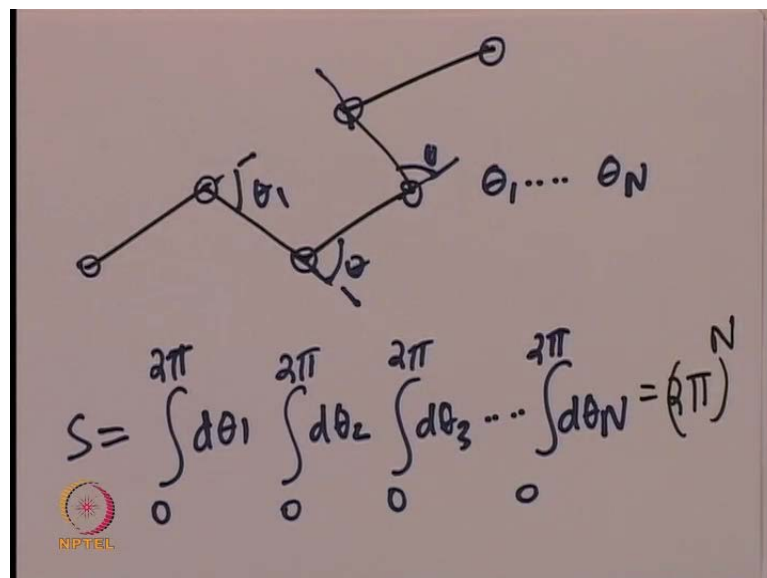 θ
θ1
θ1 .... θN
θ
S = ∫₀^2π dθ1 ∫₀^2π dθ2 ∫₀^2π dθ3 .... ∫₀^2π dθN = (2π)^N
NPTEL